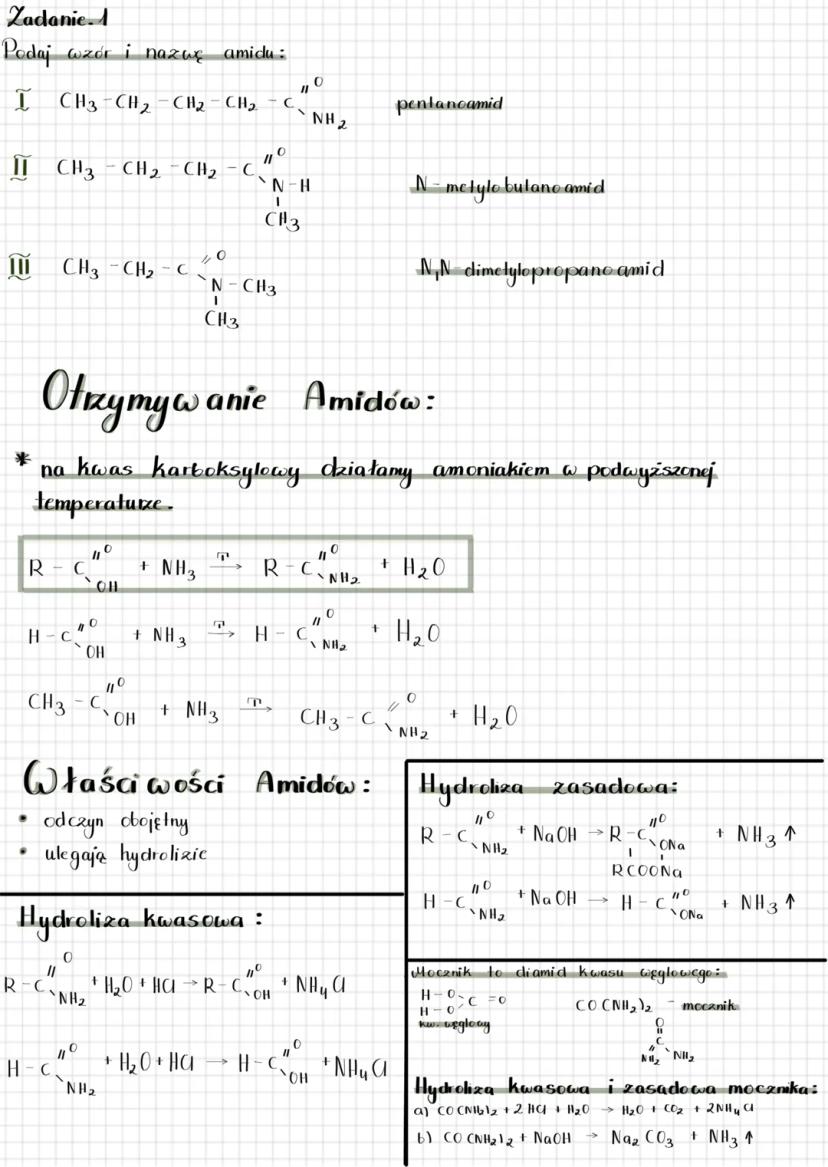 Zadanie.1
Podaj wzór i nazwę amidu:
I CH3-CH2-CH2-CH2-C(=O)NH2 pentanoamid
II CH3-CH2-CH2-C(=O)N-H N-metylobutanoamid
CH3
III CH3-CH2-C(=O)N-CH3 N,N-dimetylopropanoamid
CH3
Otrzymywanie Amidów:
* na kwas karboksylowy działamy amoniakiem w podwyższonej
temperaturze.
R-C(=O)OH + NH3 T→ R-C(=O)NH2 + H2O
H-C(=O)OH + NH3 T→ H-C(=O)NH2 + H2O
CH3-C(=O)OH + NH3 T→ CH3-C(=O)NH2 + H2O
Właściwości Amidów:
• odczyn obojętny
• ulegają hydrolizie
Hydroliza kwasowa:
R-C(=O)NH2 + H2O + HCl → R-C(=O)OH + NH4Cl
H-C(=O)NH2 + H2O + HCl → H-C(=O)OH + NH4Cl
Hydroliza zasadowa:
R-C(=O)NH2 + NaOH → R-C(=O)ONa + NH3↑
RCOONa
H-C(=O)NH2 + NaOH → H-C(=O)ONa + NH3↑
Mocznik to diamid kwasu węglowego:
H-O
H-O C=O CO(NH2)2 - mocznik
kw. węglowy
O
C
NH2 NH2
Hydroliza kwasowa i zasadowa mocznika:
a) CO(NH2)2 + 2HCl + H2O → H2O + CO2 + 2NH4Cl
b) CO(NH2)2 + NaOH → Na2CO3 + NH3↑